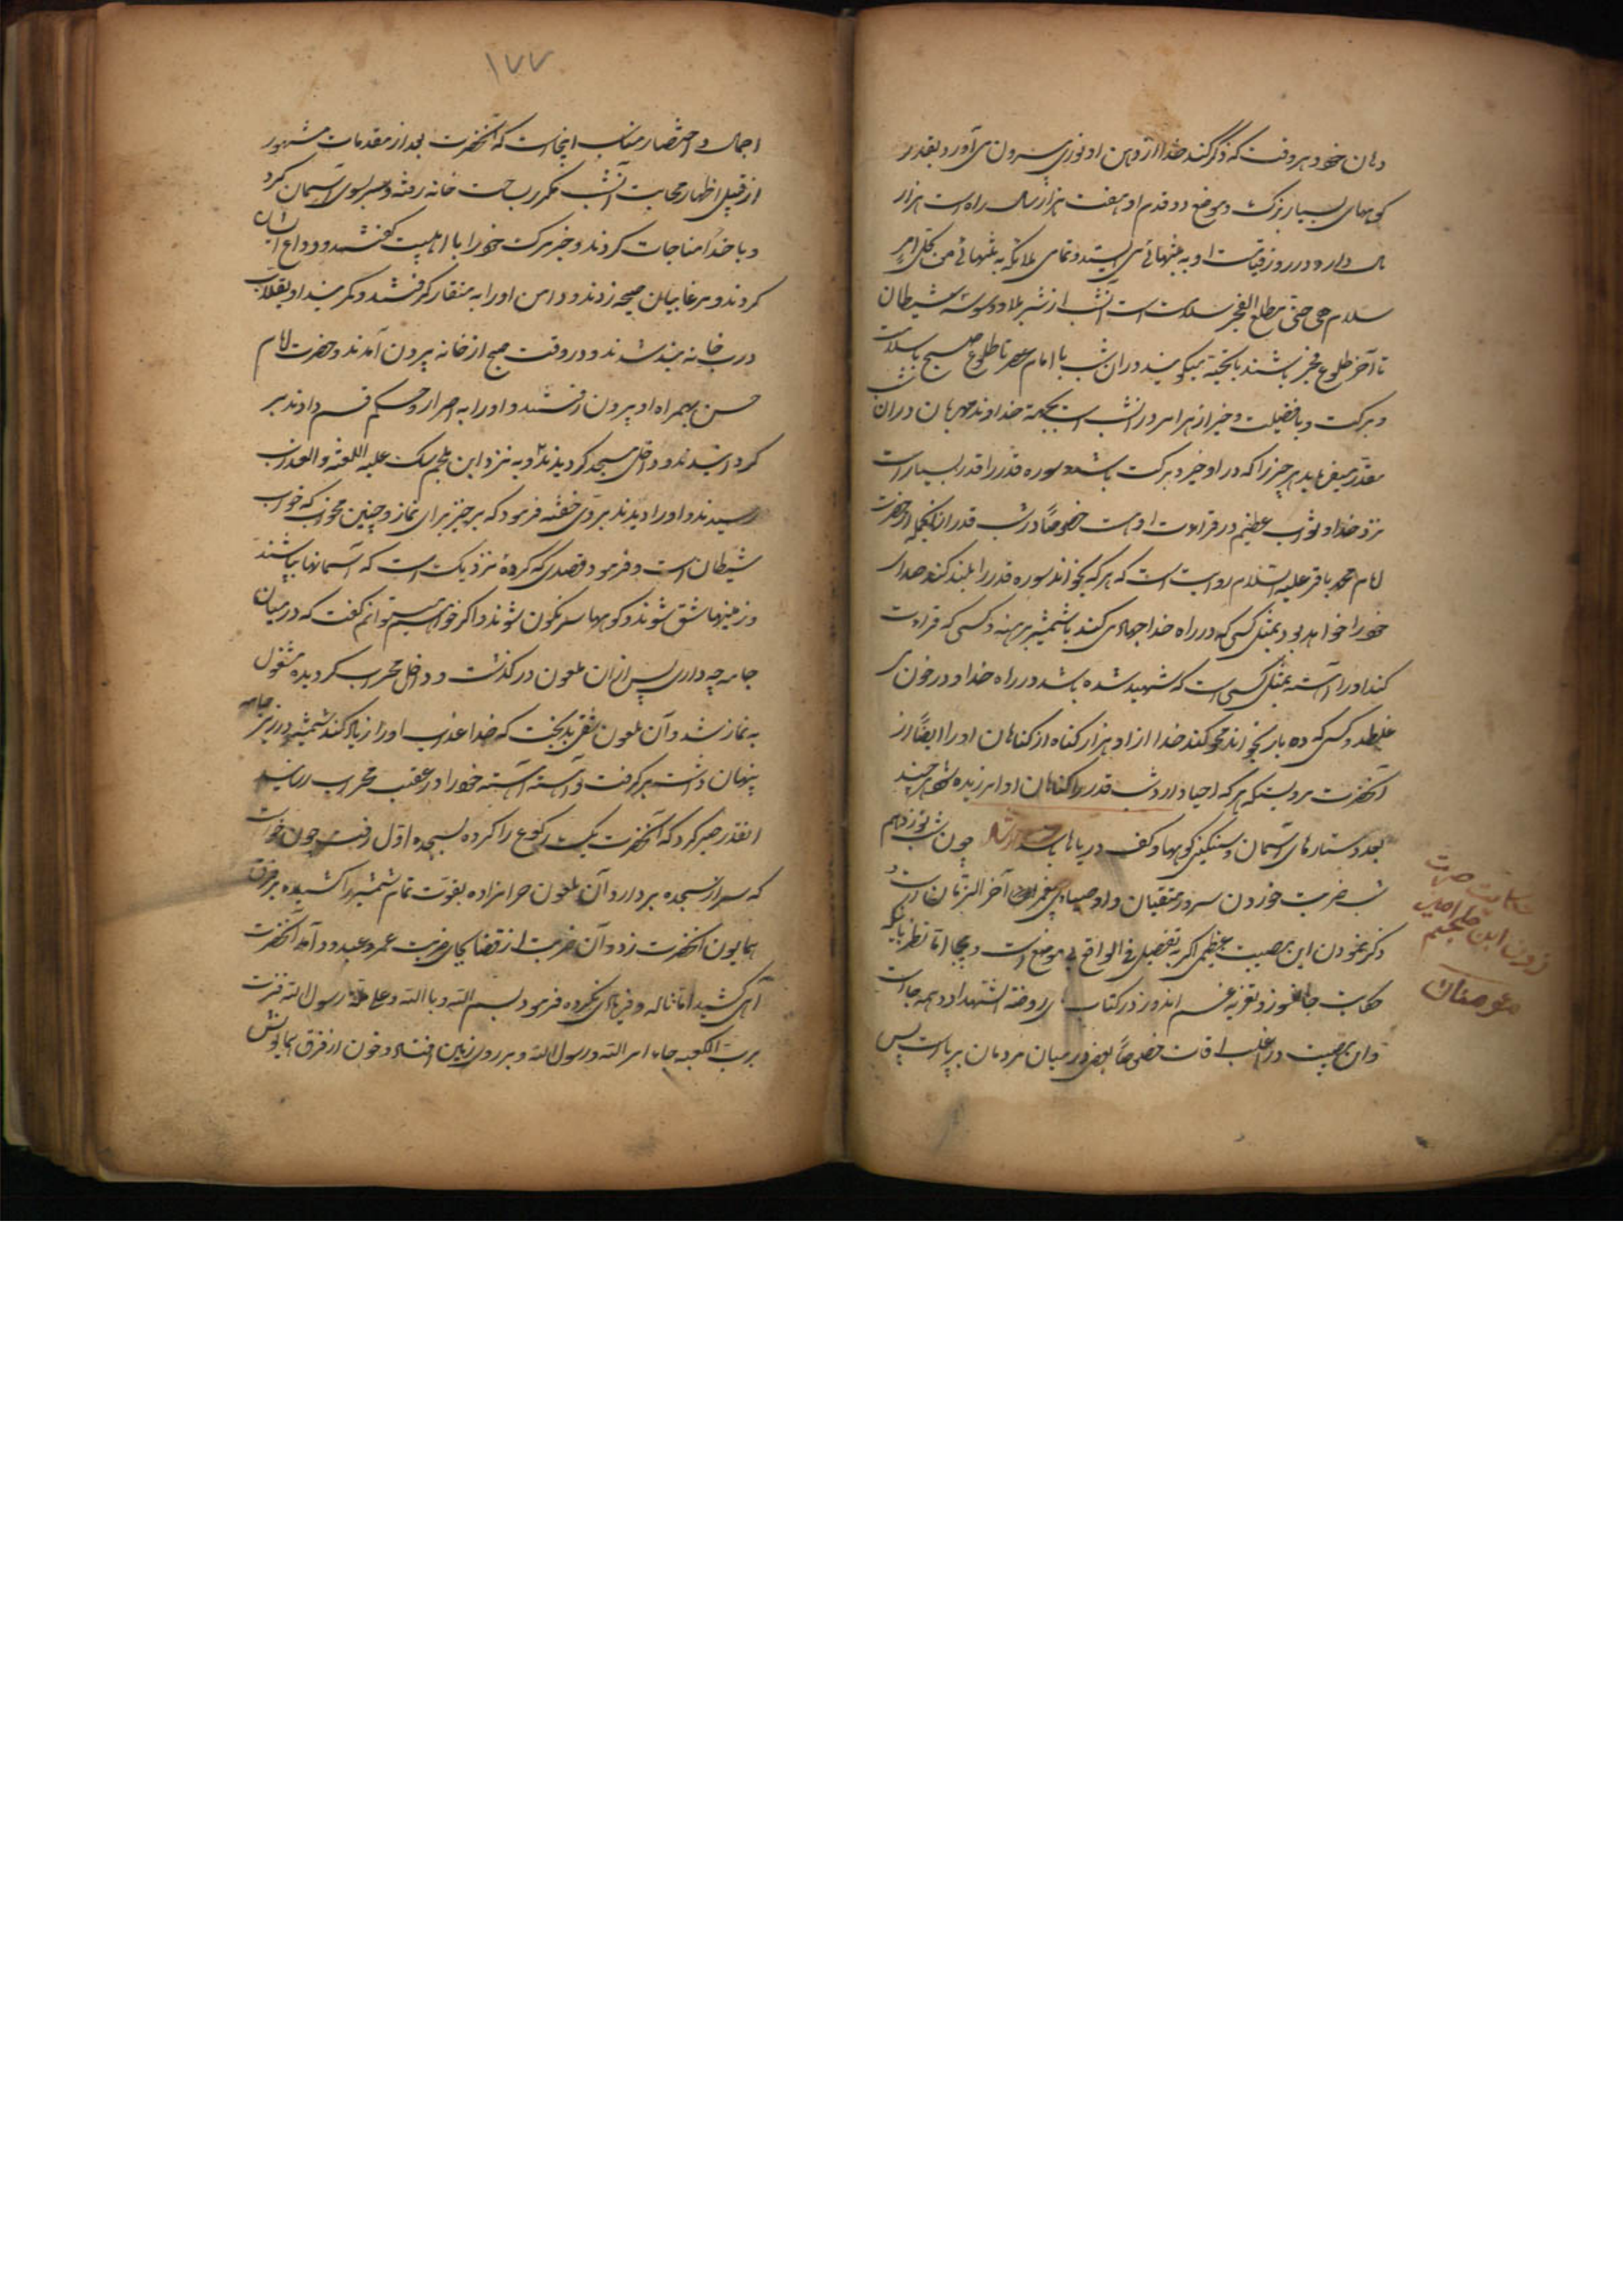 دهان خود هر وقت که ذکر کند خدا از دهن او نوری بیرون می آورد بقدر
کوههای بسیار بزرگ و موضع دو قدم او هفت هزار سال راه است هزار
بال دارد و در روز قیامت او به تنهائی می ایستد و تمامی ملائکه به تنهائی من کل امر
سلام هی حتی مطلع الفجر سلامت است آنشب از شر بلا و وسوسه شیطان
تا آخر طلوع فجر باشند یا تحیة میگویند در آن شب با امام عصر تا طلوع صبح با سلامت
و برکت و با فضیلت و خیر از هر امر در آنشب است بجهة خداوند مهربان در آن شب
مقدر میفرماید هر چیز را که در او خیر و برکت باشد و سوره قدر را قدر بسیار است
نزد خدا و ثواب عظیم در قراءت او هست خصوصاً در شب قدر از آنجمله از حضرت
امام محمد باقر علیه السلام روایت است که هر که بخواند سوره قدر را بلند کند صدای
خود را خواهد بود بمثل کسی که در راه خدا جهاد می کند با شمشیر برهنه و کسی که قراءت
کند او را آهسته بمثل کسی است که شهید شده باشد در راه خدا و در خون می
غلطد و کسی که ده بار بخواند محو کند خدا از او هزار گناه از گناهان او را ایضاً از
آنحضرت مرویست که هر که احیا دارد شب قدر را گناهان او امرزیده شود هر چند
بعدد ستارهای آسمان و سنگینی کوهها و کف دریاها باشد چون شب نوزدهم
شب ضربت خوردن سرور متقیان و اوصیای پیغمبر آخر الزمان است و
ذکر نمودن این مصیبت عظمی اگر به تفصیل فی الواقع بی موضع است و بیجا اما نظر باینکه
حکایت جانسوز و تعزیه غم اندوز در کتاب روضة الشهدا در همه جا است
و این مصیبت در اغلب اوقات خصوصاً در میان مردمان برپا است پس
حکایت ضربت
زدن ابن ملجم امیر
مؤمنان
۱۷۷
اجمال و اختصار مناسب اینجا است که آنحضرت بعد از مقدمات مشهور
از قبیل اظهار عجایب آنشب مکرر بساحت خانه رفته و سر بسوی آسمان کرد
و با خدا مناجات کردند و خبر مرگ خود را با اهلبیت گفتند و وداع ایشان
کردند و مرغابیان صیحه زدند و دامن او را به منقار گرفتند و کمربند او بقلاب
درب خانه بند شدند و در وقت صبح از خانه بیرون آمدند و حضرت امام
حسن بهمراه او بیرون رفتند و او را به اصرار و حکم قسم دادند بر
گردانیدند و داخل مسجد گردیدند و به نزد ابن ملجم سگ علیه اللعنه و العذاب
رسیدند و او را دیدند بروی خفته فرمود که برخیز برای نماز و چنین مخواب که خواب
شیطان است و فرمود قصدی که کرده نزدیک است که آسمانها بپاشند
و زمینها شق شوند و کوهها سرنگون شوند و اگر خواهم میتوانم گفت که در میان
جامه چه داری پس از آن ملعون در گذشت و داخل محراب گردیده مشغول
به نماز شد و آن ملعون شقی بدبخت که خدا عذاب او را زیاد کند شمشیر در زیر جامه
پنهان داشت برگرفت و آهسته آهسته خود را در عقب محراب رسانید
انقدر صبر کرد که آنحضرت یک رکوع را کرده بسجده اول رفت چون خواست
که سر از سجده بردارد آن ملعون حرامزاده بقوت تمام شمشیر را کشیده بر فرق
همایون آنحضرت زد و آن ضربت از قضا بجای ضربت عمرو عبدود آمد آنحضرت
آهی کشید اما ناله و فریادی نکرده فرمود بسم الله و بالله و علی ملة رسول الله فزت
برب الکعبه جاء امر الله و رسول الله و بر روی زمین افتاد و خون از فرق همایونش